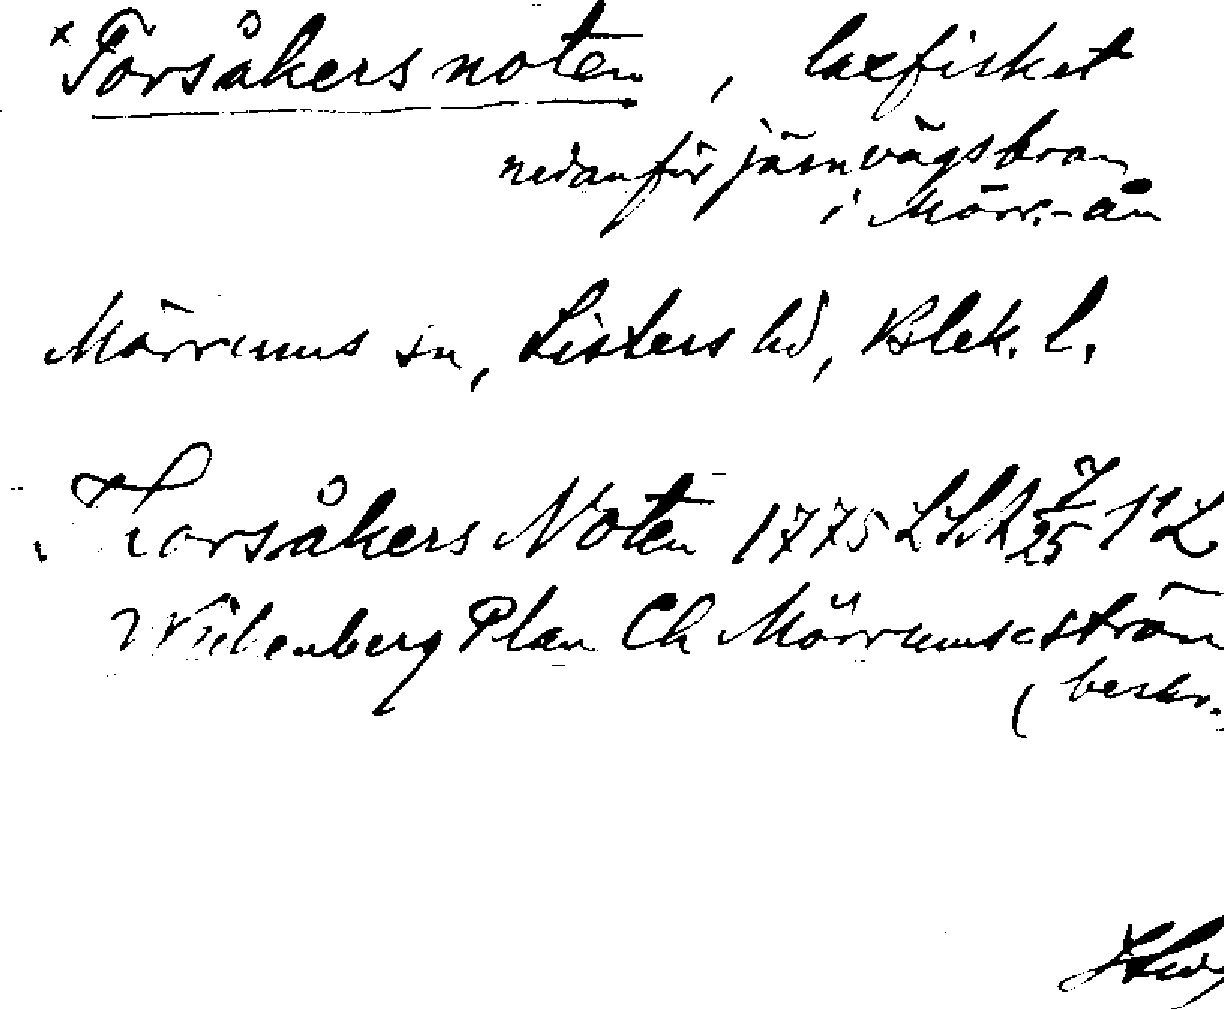 *Forsåkersnoten, laxfisket
nedanför järnvägsbron
i Mörr.-ån
Mörrums sn, Listers hd, Blek. l.
Forsåkers Noten 1775 LSA 7/25 1:2
Wiebenberg Plan Ch Mörrums ström
(beskr.